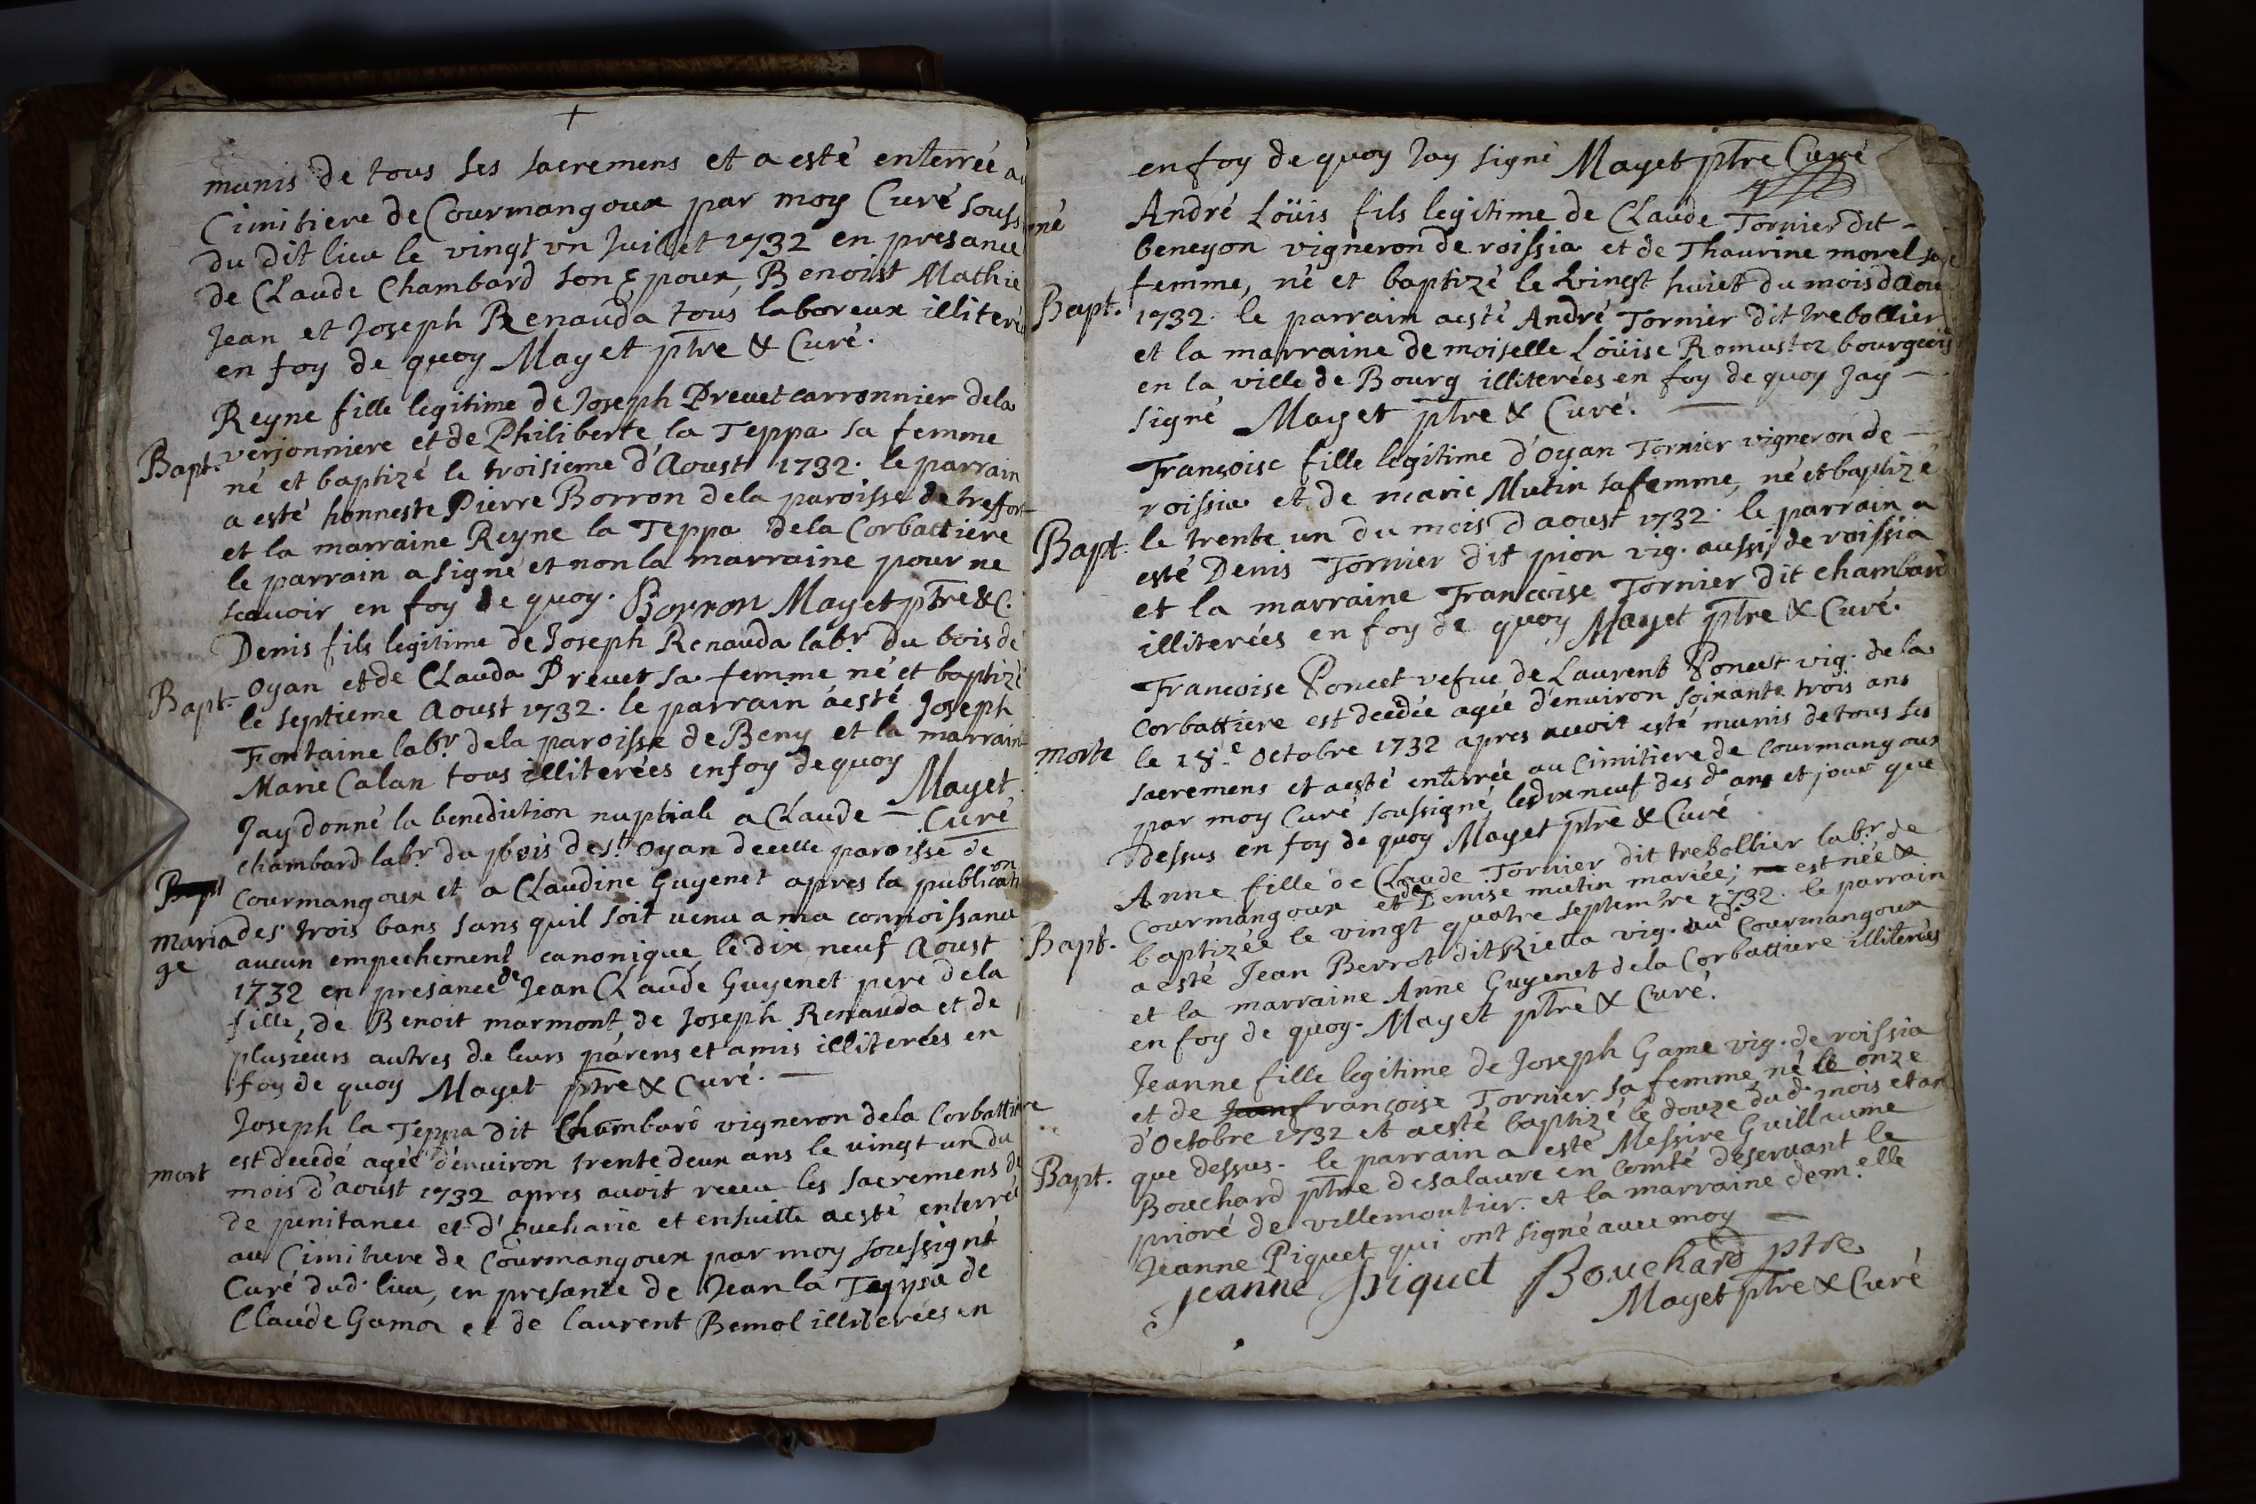 munis de tous ses sacremens et a esté enterrée au
Cimitiere de Courmangoux par moy Curé soussigné
du dit lieu le vingt un Juillet 1732 en presance
de Claude Chambard son Epoux, Benoist Mathie
Jean et Joseph Renauda tous laboreux illiteré
en foy de quoy Mayet ptre & Curé.
Reyne fille legitime de Joseph Prevet carronnier dela
verjonniere et de Philiberte la Teppa sa femme
Bapt. né et baptizé le troisieme d'Aoust 1732. le parrain
a esté honneste Pierre Borron dela paroisse de treffort
et la marraine Reyne la Teppa dela Corbattiere
le parrain a signé et non la marraine pour ne
scavoir en foy de quoy. Borron Mayet ptre & C.
Denis fils legitime de Joseph Renauda labr. du bois de
oyan et de Clauda Prevet sa femme né et baptizé
Bapt. le septieme Aoust 1732. le parrain aesté Joseph
Fontaine labr. dela paroisse de Beny et la marraine
Marie Calan tous illiterées en foy de quoy
Mayet
Jay donné la benediction nuptiale a Claude — Curé
chambard labr. du bois de st. oyan decelle paroisse de
Bapt Courmangoux et a Claudine Guyenet apres la publication
maria des trois bans sans quil soit venu a ma connoissance
ge aucun empechement canonique le dix neuf Aoust
1732 en presance de Jean Claude Guyenet pere de la
fille, de Benoit marmont de Joseph Renauda et de
plusieurs autres de leurs parens et amis illiterées en
foy de quoy Mayet ptre & Curé. —
Joseph la Teppa dit Chambard vigneron dela Corbattiere
est decedé ageé d'environ trente deux ans le vingt un du
mort mois d'aoust 1732 apres avoit receu les sacremens de
de penitance et d'Eucharie et ensuitte aesté enterré
au Cimitiere de Courmangoux par moy soussigné
Curé dud. lieu, en presance de Jean la Teppa de
Claude Gama et de laurent Bemol illiterées en
en foy de quoy Jay signé Mayet ptre Curé
André Löüis fils legitime de Claude Tornier dit —
beneyon vigneron de roissia et de Thaurine morel sa
femme, né et baptizé le vingt huict du mois daou
Bapt. 1732. le parrain aesté André Tornier dit trebollier
et la marraine demoiselle Löüise Romustoz bourgeois
en la ville de Bourg illiterées en foy de quoy Jay —
signé Mayet ptre & Curé. —
Françoise fille legitime d'oyan Tornier vigneron de —
roissia et de marie Mutin sa femme, né et baptizé
Bapt. le trente un du mois d aoust 1732. le parrain a
esté Denis Tornier dit pion vig. aussi de roissia
et la marraine Francoise Tornier dit chambard
illiterées en foy de quoy Mayet ptre & Curé.
Francoise Poncet vefue de Laurent Poncet vig. de la
Corbattiere est decedée agée d'environ soixante trois ans
morte le 18.e Octobre 1732 apres avoir esté munis de tous ses
sacremens et aesté enterrée au Cimitiere de Courmangoux
par moy Curé soussigné, le dix neuf des d. ans et jour que
dessus en foy de quoy Mayet ptre & Curé
Anne fille de Claude Tornier dit trebollier labr. de
Courmangoux et de Denise mutin mariée; est née &
Bapt. baptizée le vingt quatre septembre 1732. le parrain
aesté Jean Berrot dit Rietta vig. aud. Courmangoux
et la marraine Anne Guyenet dela Corbattiere illiterées
en foy de quoy. Mayet ptre & Curé.
Jeanne fille legitime de Joseph Game vig. de roissia
et de Jean françoise Tornier sa femme né le onze
d'Octobre 1732 et aesté baptizé le douze dud. mois et an
Bapt. que dessus. le parrain a esté Messire Guillaume
Bouchard ptre desalaure en comté deservant le
prioré de villemoutier. et la marraine dem.elle
Jeanne Piquet qui ont signé avec moy —
Jeanne Piquet Bouchard ptre
Mayet ptre & Curé